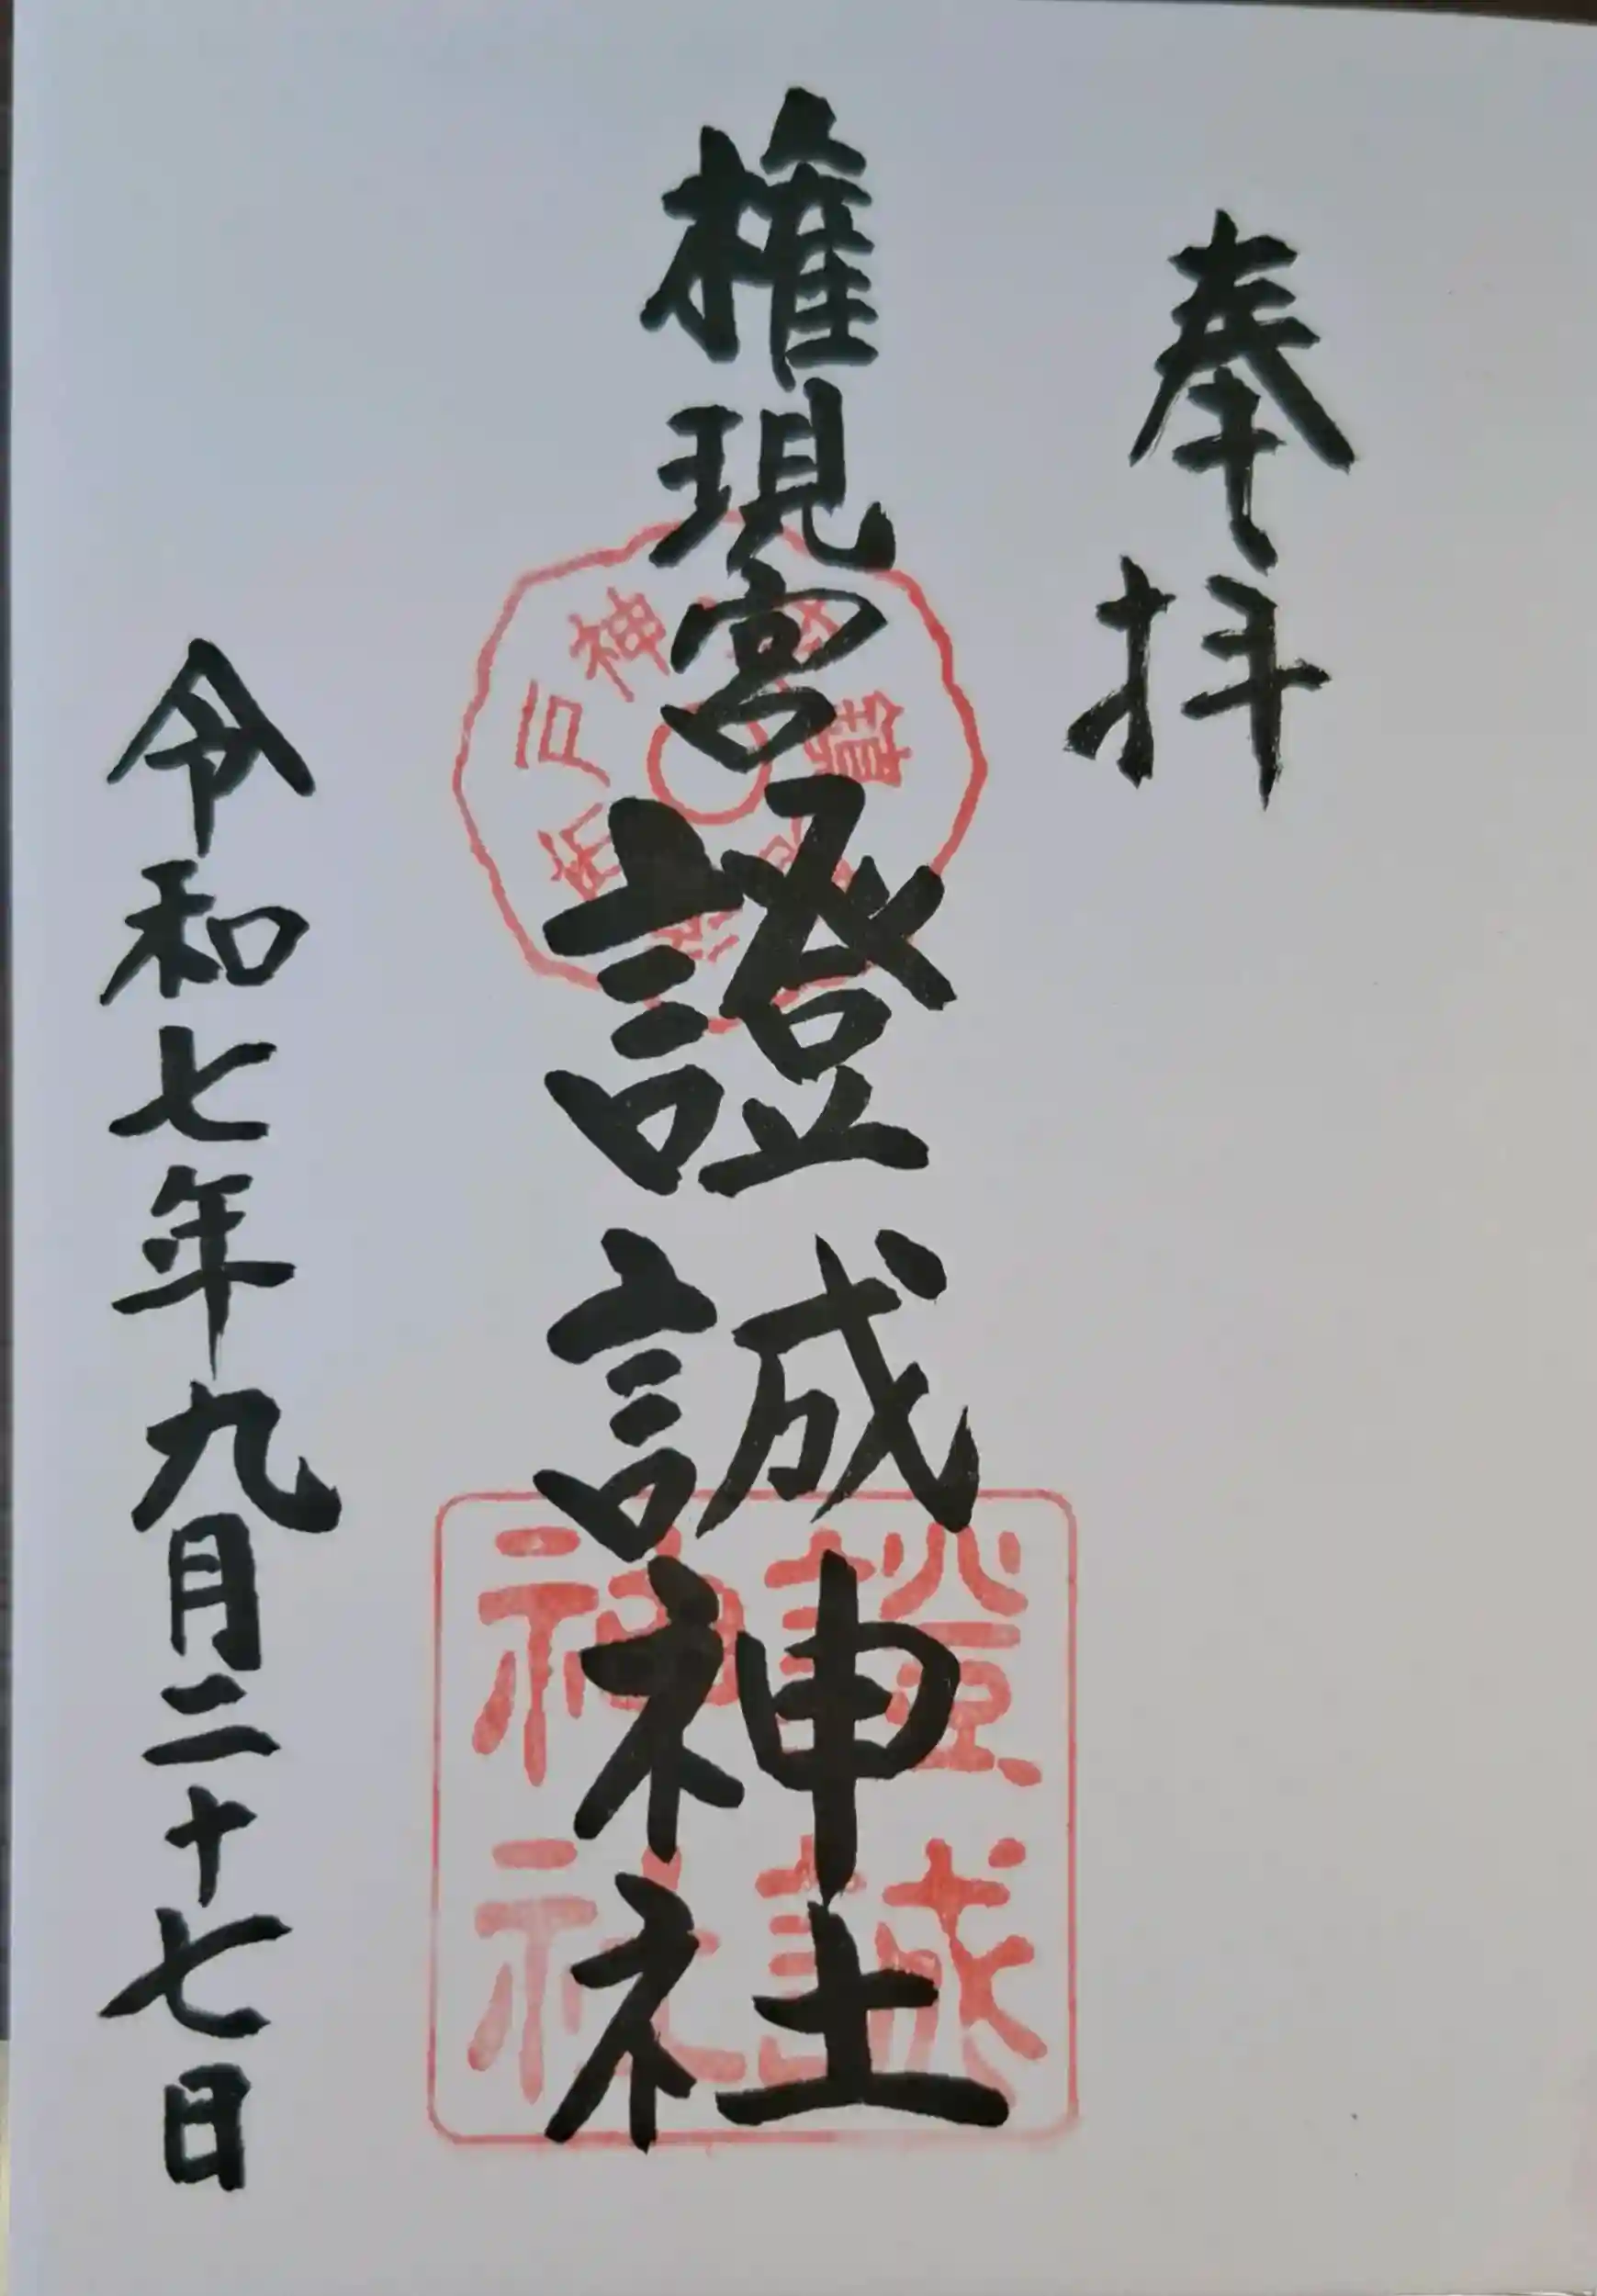 奉拝
権現宮證誠神社
證誠
神社
令和七年九月二十七日